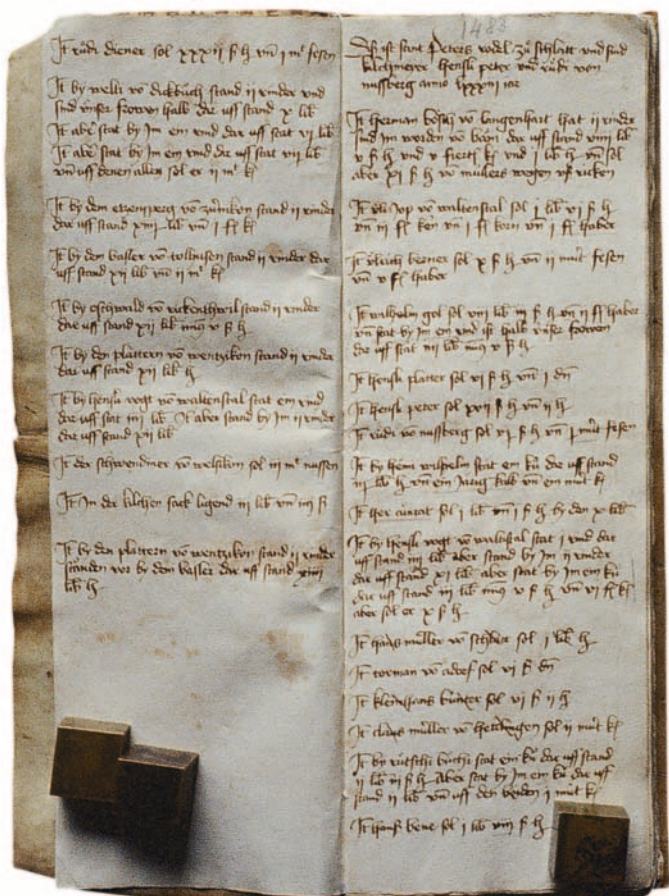 It rudi diener sol xxxii ß h vn̄ i mt fesen
It by welti vō dickbuch stand ii rinder vnd
sind vnser frowen halb dar uff stand x lib
It aber stat by Im ein rind dar uff stat vi lib
It aber stat by Im ein rind dar uff stat vii lib
vn̄ uff denen allen sol er ii mt k
It by dem vō stand ii rinder
dar uff stand xiii lib vn̄ i fl k
It by dem basler vō stand ii rinder dar
uff stand xii lib vn̄ ii mt k
It by oschwald vō stand ii rinder
dar uff stand xii lib minus v ß h
It by den plattern vō wentziken stand ii rinder
dar uff stand xii lib h
It by hensli vogt vō waltenstal stat ein rind
dar uff stat iiii lib It aber stand by Im ii rinder
dar uff stand xii lib
It der schwendiner vō sol iii mt nussen
It In der kilchen sack ligend iii lib vn̄ iiii ß
It by den plattern vō wentziken stand ii rinder
standen vor by dem basler dar uff stand xiiii
lib h
1483
Dis ist sant Peters rodel zu schlatt vnd sind
kilchmeyer hensli peter vnd rudi von
nussberg anno lxxxiii iar
It herman vō langenhart hat ii rinder
sind Im worden vō dar uff stand viiii lib
v ß h vnd v fiertl k vnd i lib h vn̄ sol
aber xi ß h vō mullers wegen
It uli Jop vō waltenstal sol i lib vi ß h
vn̄ iii fl ken vn̄ i fl korn vn̄ i fl haber
It ulrich berner sol x ß h vn̄ ii müt fesen
vn̄ v fl haber
It wilhelm gol sol viii lib iii ß h vn̄ ii fl haber
vn̄ stat by Im ein rind ist halb vnser frowen
dar uff stat iiii lib minus v ß h
It hensli platter sol vi ß h vn̄ i dn̄
It hensli peter sol xvii ß h vn̄ ii h
It rudi vō nussberg sol xi ß h vn̄ i müt fesen
It by heini wilhelm stat ein ku dar uff stand
iii lib h vn̄ ein Jarig kalb vn̄ ein müt k
It her cunrat sol i lib vn̄ i ß h by den x lib
It by hensli vogt vō waltenstal stat i rind dar
uff stand iiii lib aber stand by Im ii rinder
dar uff stand xi lib aber stat by Im ein ku
dar uff stand iii lib minus v ß h vn̄ vi fl k
aber sol er x ß h
It hans müller vō schlatt sol i lib h
It torman vō adorf sol vi ß dn̄
It kleinhans bunter sol vi ß ii h
It claus müller vō hettlingen sol ii müt k
It by rutschi buchi stat ein ku dar uff stand
ii lib iii ß h Aber stat by Im ein ku dar uff
stand ii lib vn̄ uff den beiden i müt k
It hans bene sol i lib viii ß h